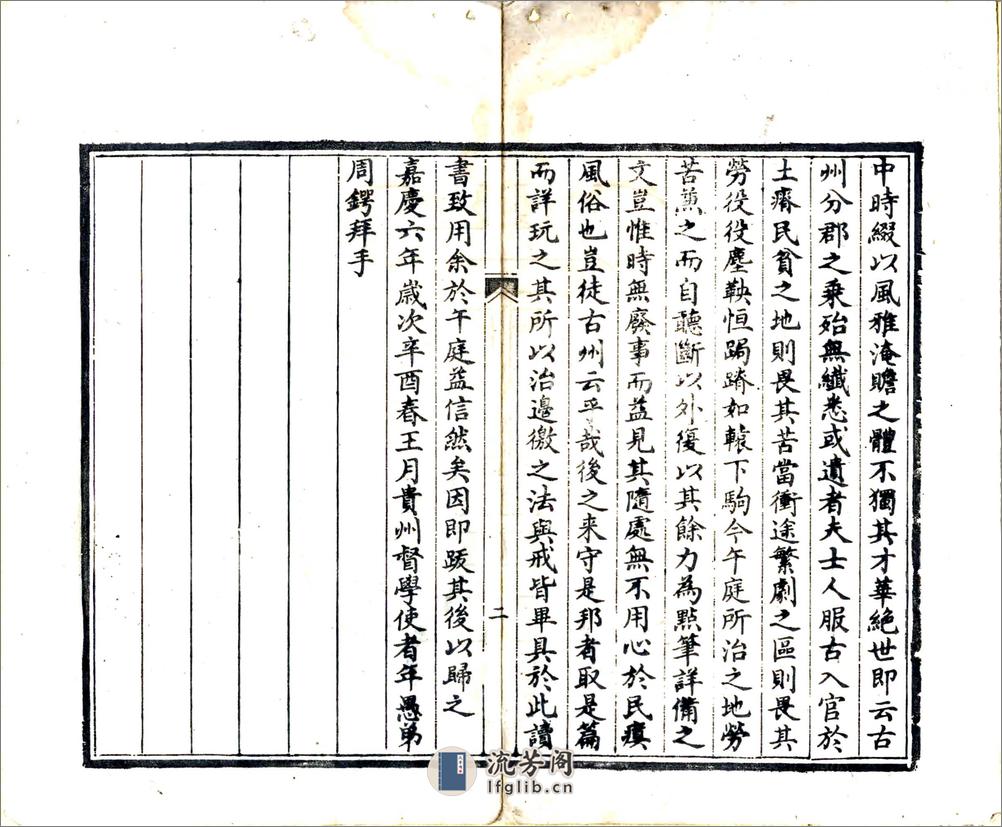 中時綴以風雅淹贍之體不獨其才華絶世即云古
州分郡之乘殆無纖悉或遺者夫士人服古入官於
土瘠民貧之地則畏其苦當衝途繁劇之區則畏其
勞役役塵鞅恒跼蹐如轅下駒今午庭所治之地勞
苦兼之而自聽斷以外復以其餘力為點筆詳備之
文豈惟時無廢事而益見其隨處無不用心於民瘼
風俗也豈徒古州云乎哉後之来守是邦者取是篇
而詳玩之其所以治邊徼之法與戒皆畢具於此讀
書致用余於午庭益信然矣因即跋其後以歸之
嘉慶六年歲次辛酉春王月貴州督學使者年愚弟
周鍔拜手
二
流芳阁
lfglib.cn